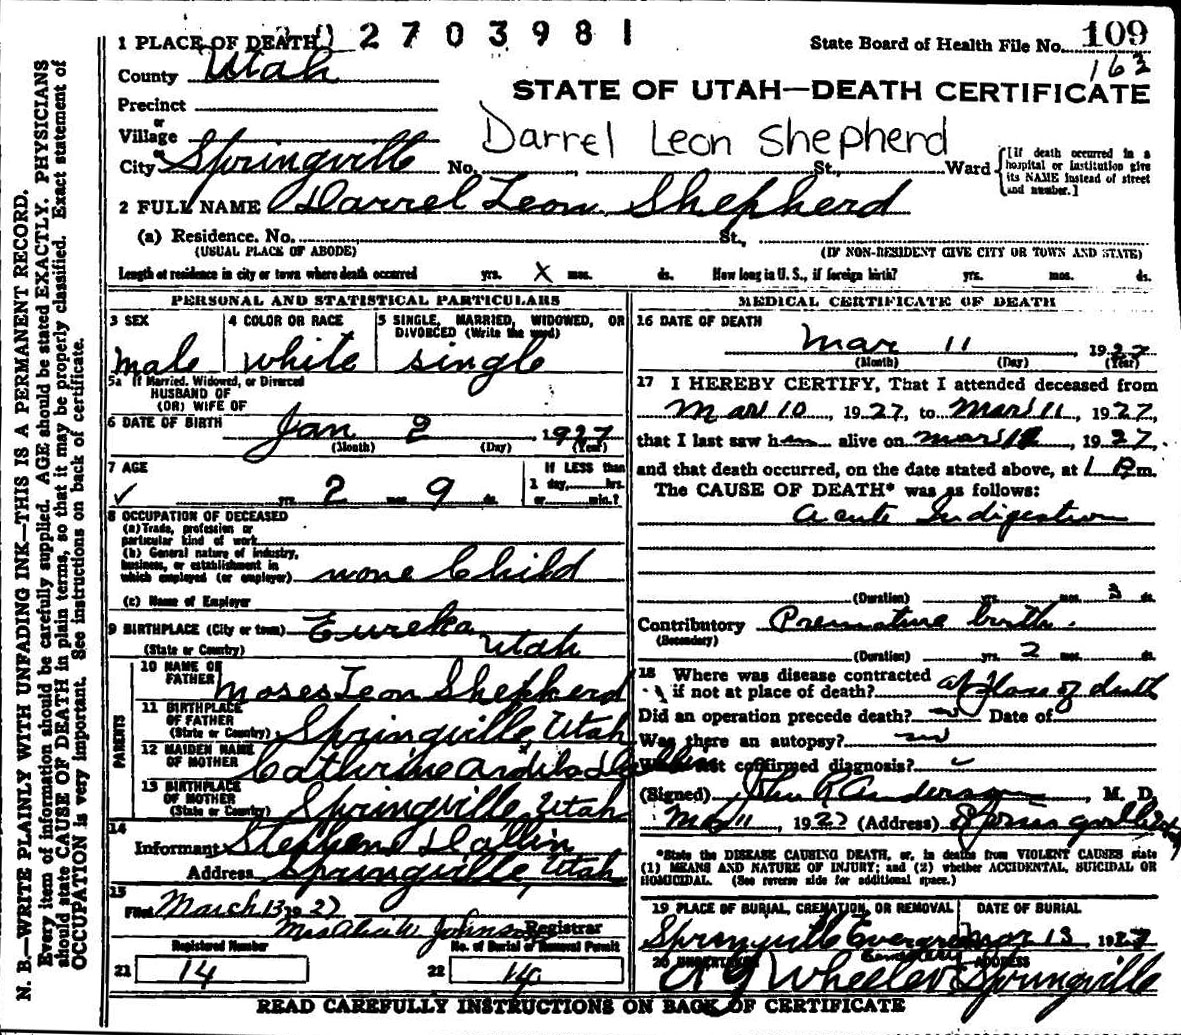 1 PLACE OF DEATH 2703981
State Board of Health File No. 109
163
County Utah
STATE OF UTAH—DEATH CERTIFICATE
Precinct
or
Village
Darrel Leon Shepherd
or
City Springville No. St., Ward
[If death occurred in a hospital or institution give its NAME instead of street and number.]
2 FULL NAME Darrel Leon Shepherd
(a) Residence. No. St.,
(USUAL PLACE OF ABODE) (IF NON-RESIDENT GIVE CITY OR TOWN AND STATE)
Length of residence in city or town where death occurred yrs. X mos. ds. How long in U. S., if foreign birth? yrs. mos. ds.
PERSONAL AND STATISTICAL PARTICULARS
3 SEX 4 COLOR OR RACE 5 SINGLE, MARRIED, WIDOWED, OR
DIVORCED (Write the word)
male white single
5a If Married, Widowed, or Divorced
HUSBAND OF
(OR) WIFE OF
6 DATE OF BIRTH Jan 2 1927
(Month) (Day) (Year)
7 AGE
✓ yrs. 2 mos. 9 ds.
If LESS than
1 day, hrs.
or min.?
8 OCCUPATION OF DECEASED
(a) Trade, profession or
particular kind of work
(b) General nature of industry,
business, or establishment in
which employed (or employer) none Child
(c) Name of Employer
9 BIRTHPLACE (City or town) Eureka
(State or Country) Utah
PARENTS
10 NAME OF
FATHER Moses Leon Shepherd
11 BIRTHPLACE
OF FATHER
(State or Country) Springville, Utah
12 MAIDEN NAME
OF MOTHER Cathrine
13 BIRTHPLACE
OF MOTHER
(State or Country) Springville, Utah
14
Informant Stephen Dallin
Address Springville, Utah
15
Filed March 13, 1927
Mrs Alice W. Johnson Registrar
Registered Number No. of Burial or Removal Permit
21 14 22 14
MEDICAL CERTIFICATE OF DEATH
16 DATE OF DEATH
Mar 11 1927
(Month) (Day) (Year)
17 I HEREBY CERTIFY, That I attended deceased from
Mar 10, 1927, to Mar 11, 1927,
that I last saw him alive on Mar 11, 1927.
and that death occurred, on the date stated above, at 1 P m.
The CAUSE OF DEATH* was as follows:
Acute Indigestion
(Duration) yrs. mos. 3 ds.
Contributory Premature birth.
(Secondary)
(Duration) yrs. 2 mos. ds.
18 Where was disease contracted
if not at place of death? at place of death
Did an operation precede death? no Date of
Was there an autopsy? no
What test confirmed diagnosis?
(Signed) John R Anderson, M. D.
Mar 11, 1927 (Address) Springville Utah
*State the DISEASE CAUSING DEATH, or, in deaths from VIOLENT CAUSES state
(1) MEANS AND NATURE OF INJURY; and (2) whether ACCIDENTAL, SUICIDAL OR
HOMICIDAL. (See reverse side for additional space.)
19 PLACE OF BURIAL, CREMATION, OR REMOVAL DATE OF BURIAL
Springville Evergreen Cemetery Mar 13 1927
20 UNDERTAKER ADDRESS
A Y Wheeler Springville
READ CAREFULLY INSTRUCTIONS ON BACK OF CERTIFICATE
N. B.—WRITE PLAINLY WITH UNFADING INK—THIS IS A PERMANENT RECORD.
Every item of information should be carefully supplied. AGE should be stated EXACTLY. PHYSICIANS
should state CAUSE OF DEATH in plain terms, so that it may be properly classified. Exact statement of
OCCUPATION is very important. See instructions on back of certificate.